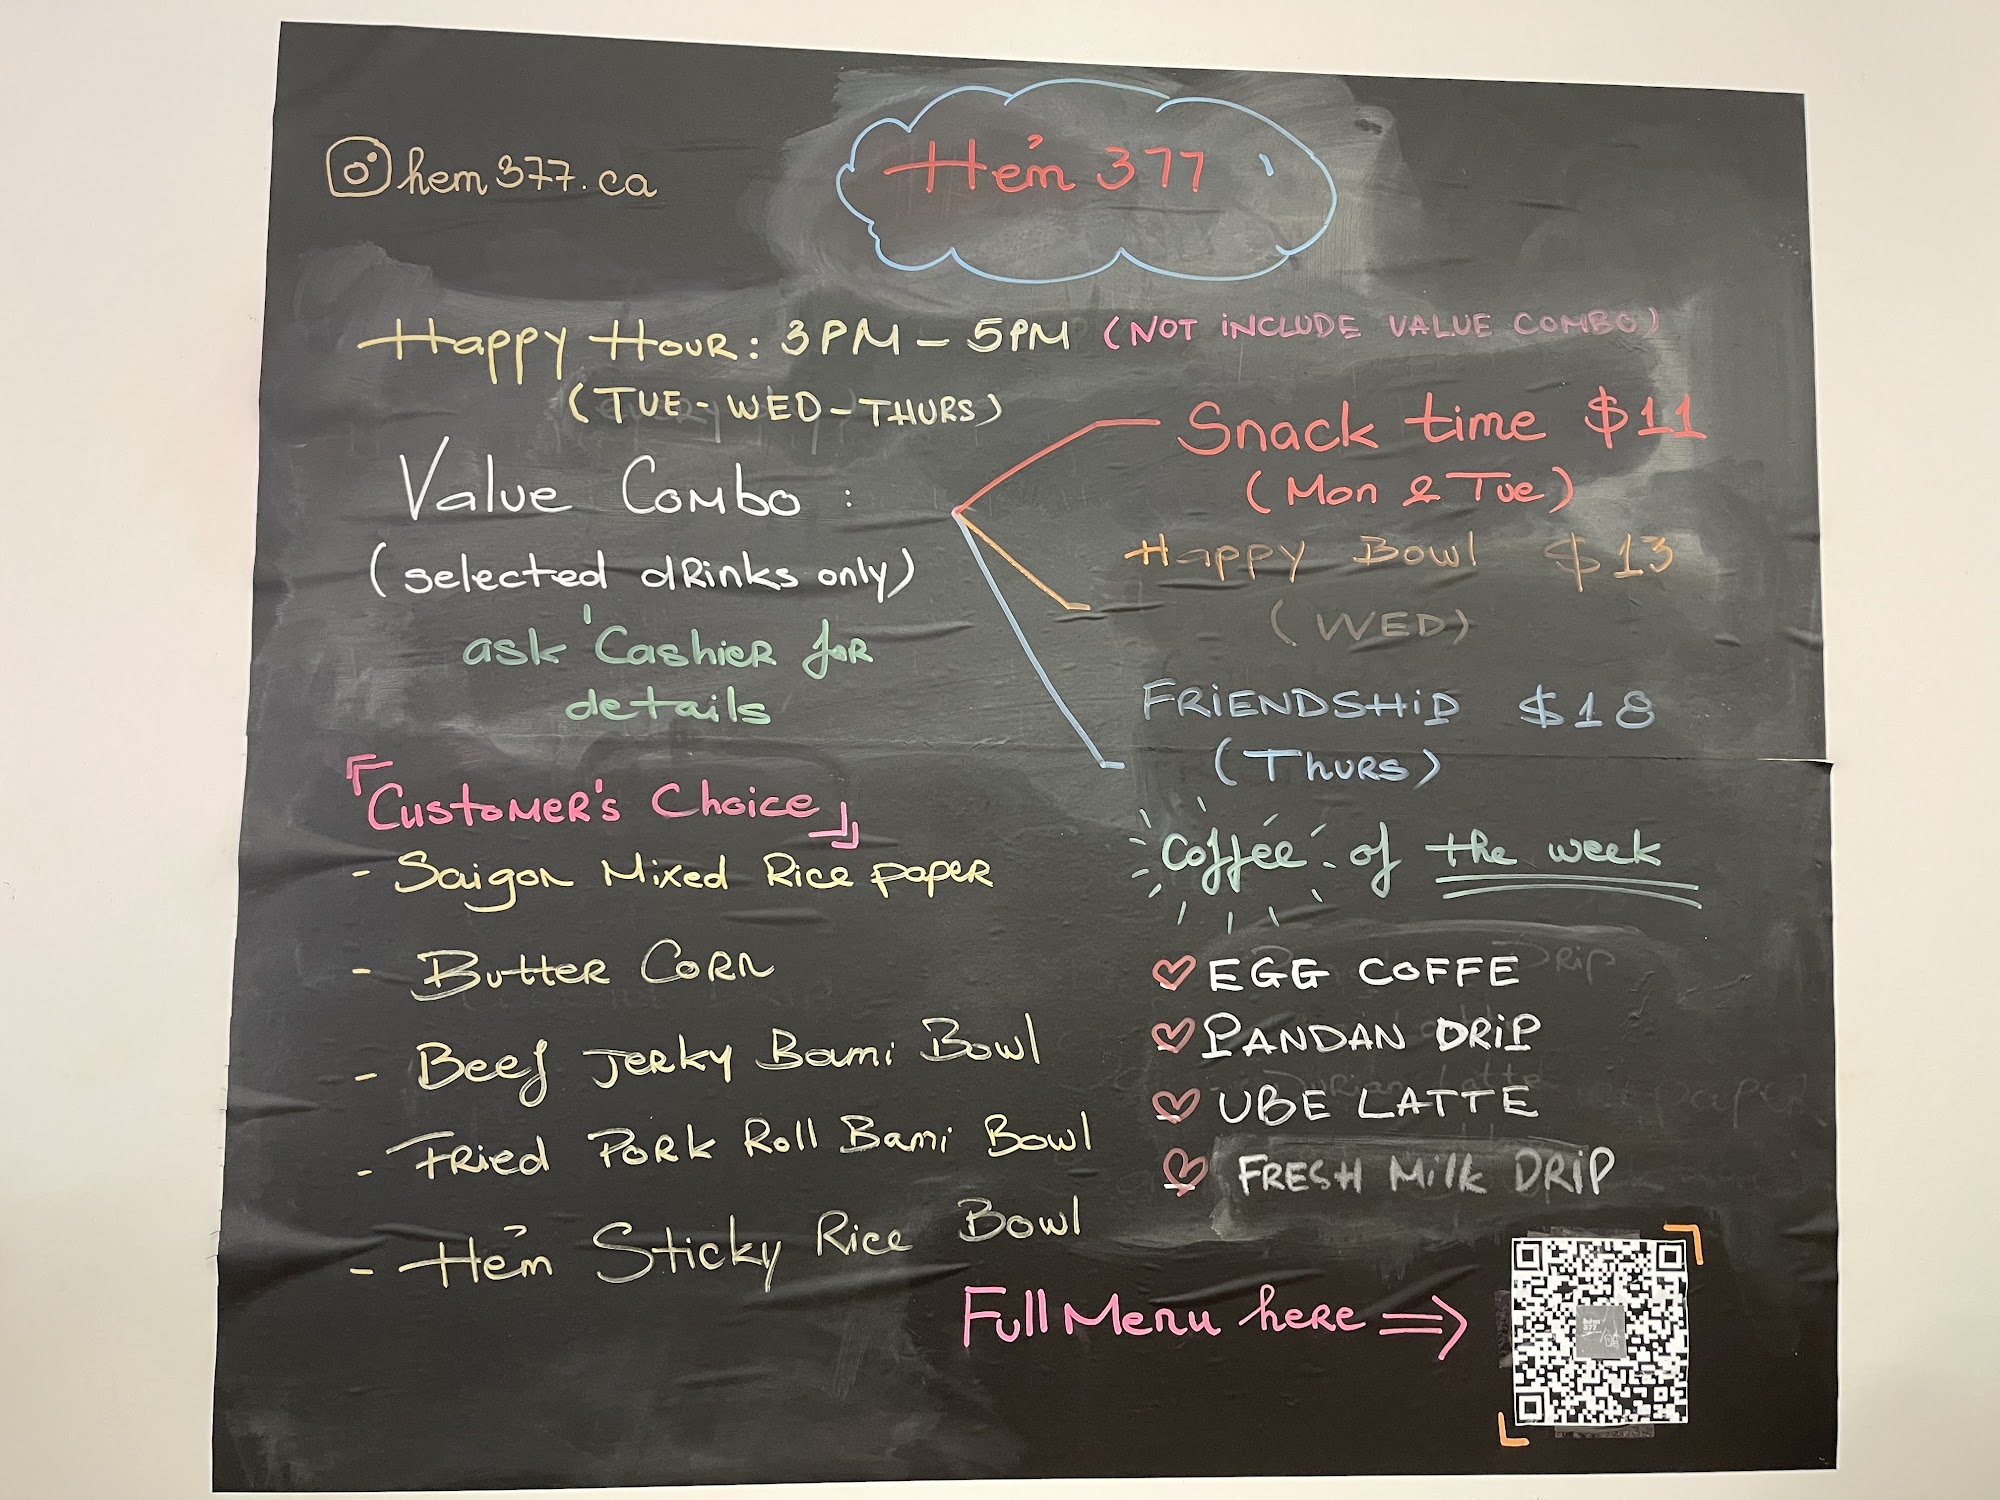 hem377.ca
Hẻm 377
Happy Hour: 3PM - 5PM (NOT iNCLUDE VALUE COMBO)
(TUE - WED - THURS)
Value Combo :
(selected dRinks only)
ask Cashier for
details
Snack time $11
(Mon & Tue)
Happy Bowl $13
(WED)
FRiENDSHiP $18
(Thurs)
Customer's Choice
- Saigon Mixed Rice paper
- Butter Corn
- Beef Jerky Bami Bowl
- Fried Pork Roll Bami Bowl
- Hẻm Sticky Rice Bowl
Coffee of the week
EGG COFFE
PANDAN DRiP
UBE LATTE
FRESH Milk DRiP
Full Menu here ⇒